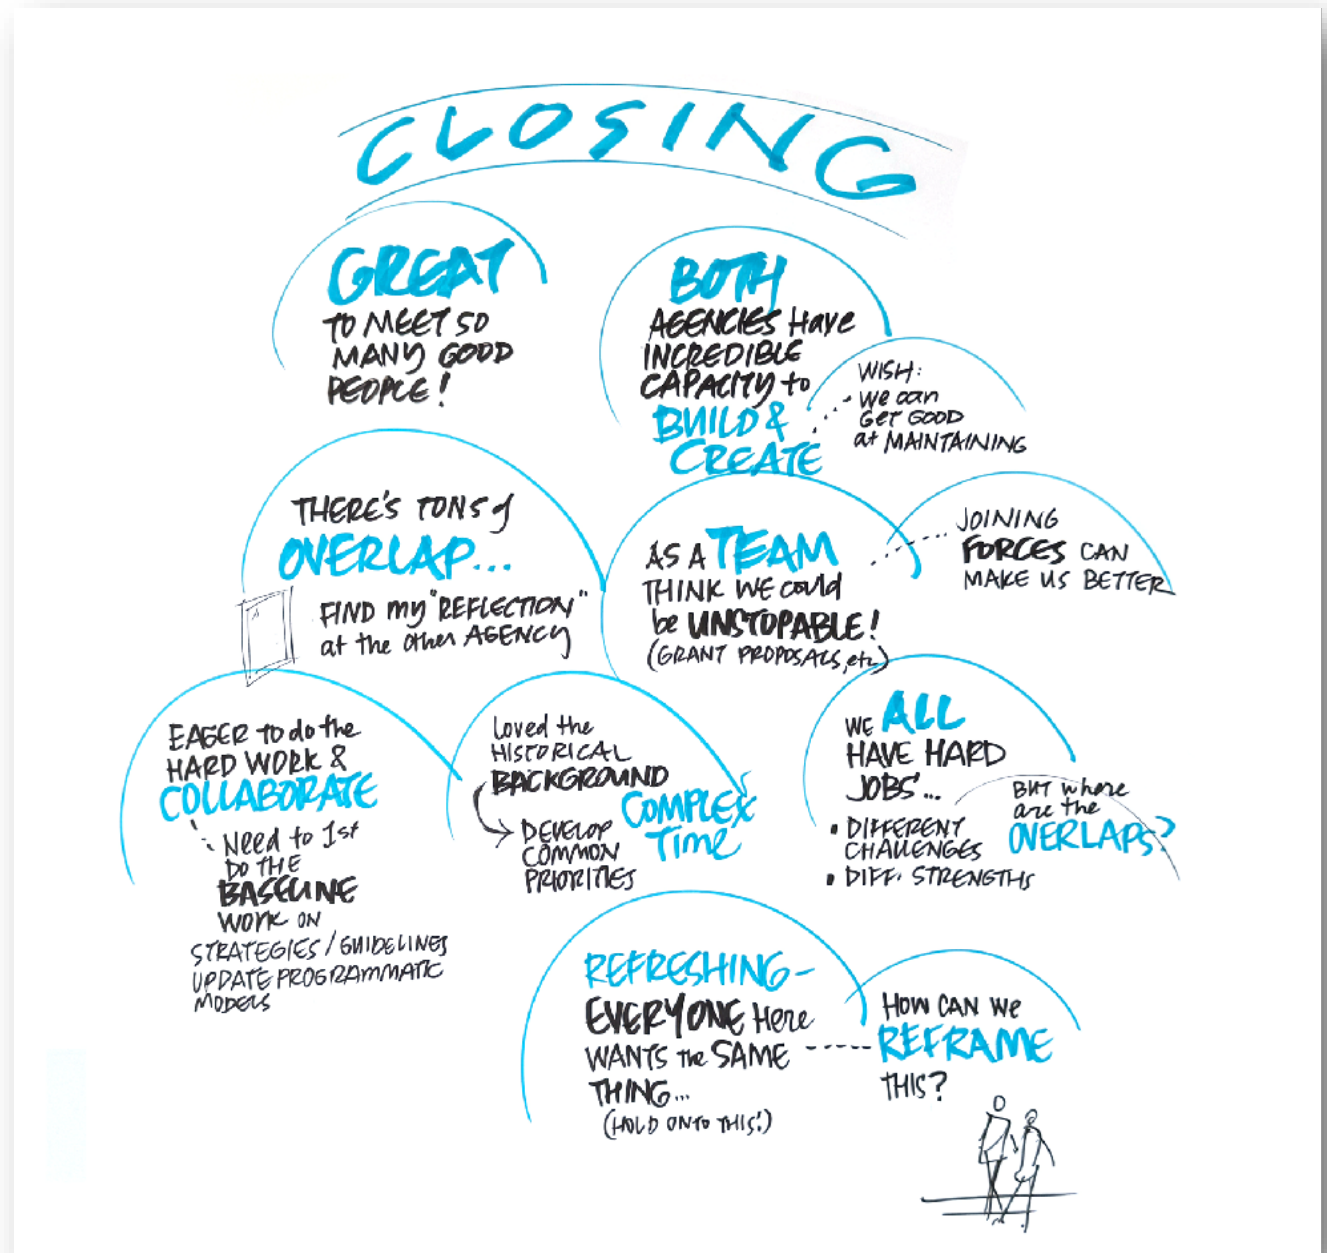 CLOSING
GREAT
TO MEET SO
MANY GOOD
PEOPLE!
BOTH
AGENCIES Have
INCREDIBLE
CAPACITY to
BUILD &
CREATE
WISH:
We can
GET GOOD
at MAINTAINING
THERE'S TONS of
OVERLAP...
FIND my "REFLECTION"
at the other AGENCY
AS A TEAM
THINK WE could
be UNSTOPABLE!
(GRANT PROPOSALS, etc)
JOINING
FORCES CAN
MAKE US BETTER
EAGER to do the
HARD WORK &
COLLABORATE
Need to 1st
DO THE
BASELINE
WORK ON
STRATEGIES / GUIDELINES
UPDATE PROGRAMMATIC
MODELS
Loved the
HISTORICAL
BACKGROUND
DEVELOP
COMMON
PRIORITIES
COMPLEX
Time
WE ALL
HAVE HARD
JOBS...
• DIFFERENT
CHALLENGES
• DIFF. STRENGTHS
BUT where
are the
OVERLAPS?
REFRESHING-
EVERYONE Here
WANTS the SAME
THING...
(HOLD ONTO THIS!)
HOW CAN WE
REFRAME
THIS?